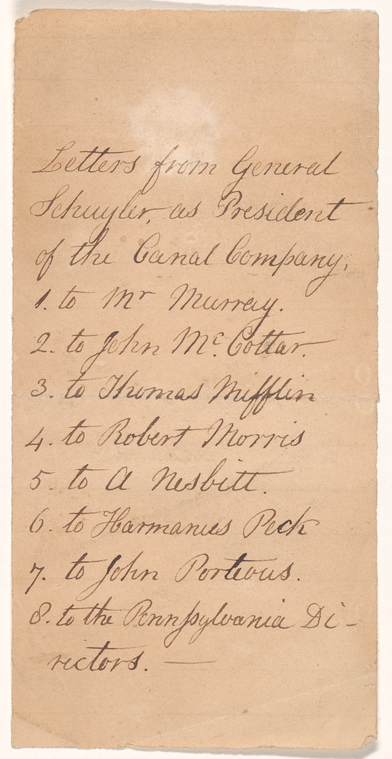 Letters from General
Schuyler, as President
of the Canal Company;
1. to Mr Murray.
2. to John Mc. Cottar.
3. to Thomas Mifflin
4. to Robert Morris
5. to A Nesbitt.
6. to Harmanus Peck
7. to John Porteous.
8. to the Pennsylvania Di-
rectors. —